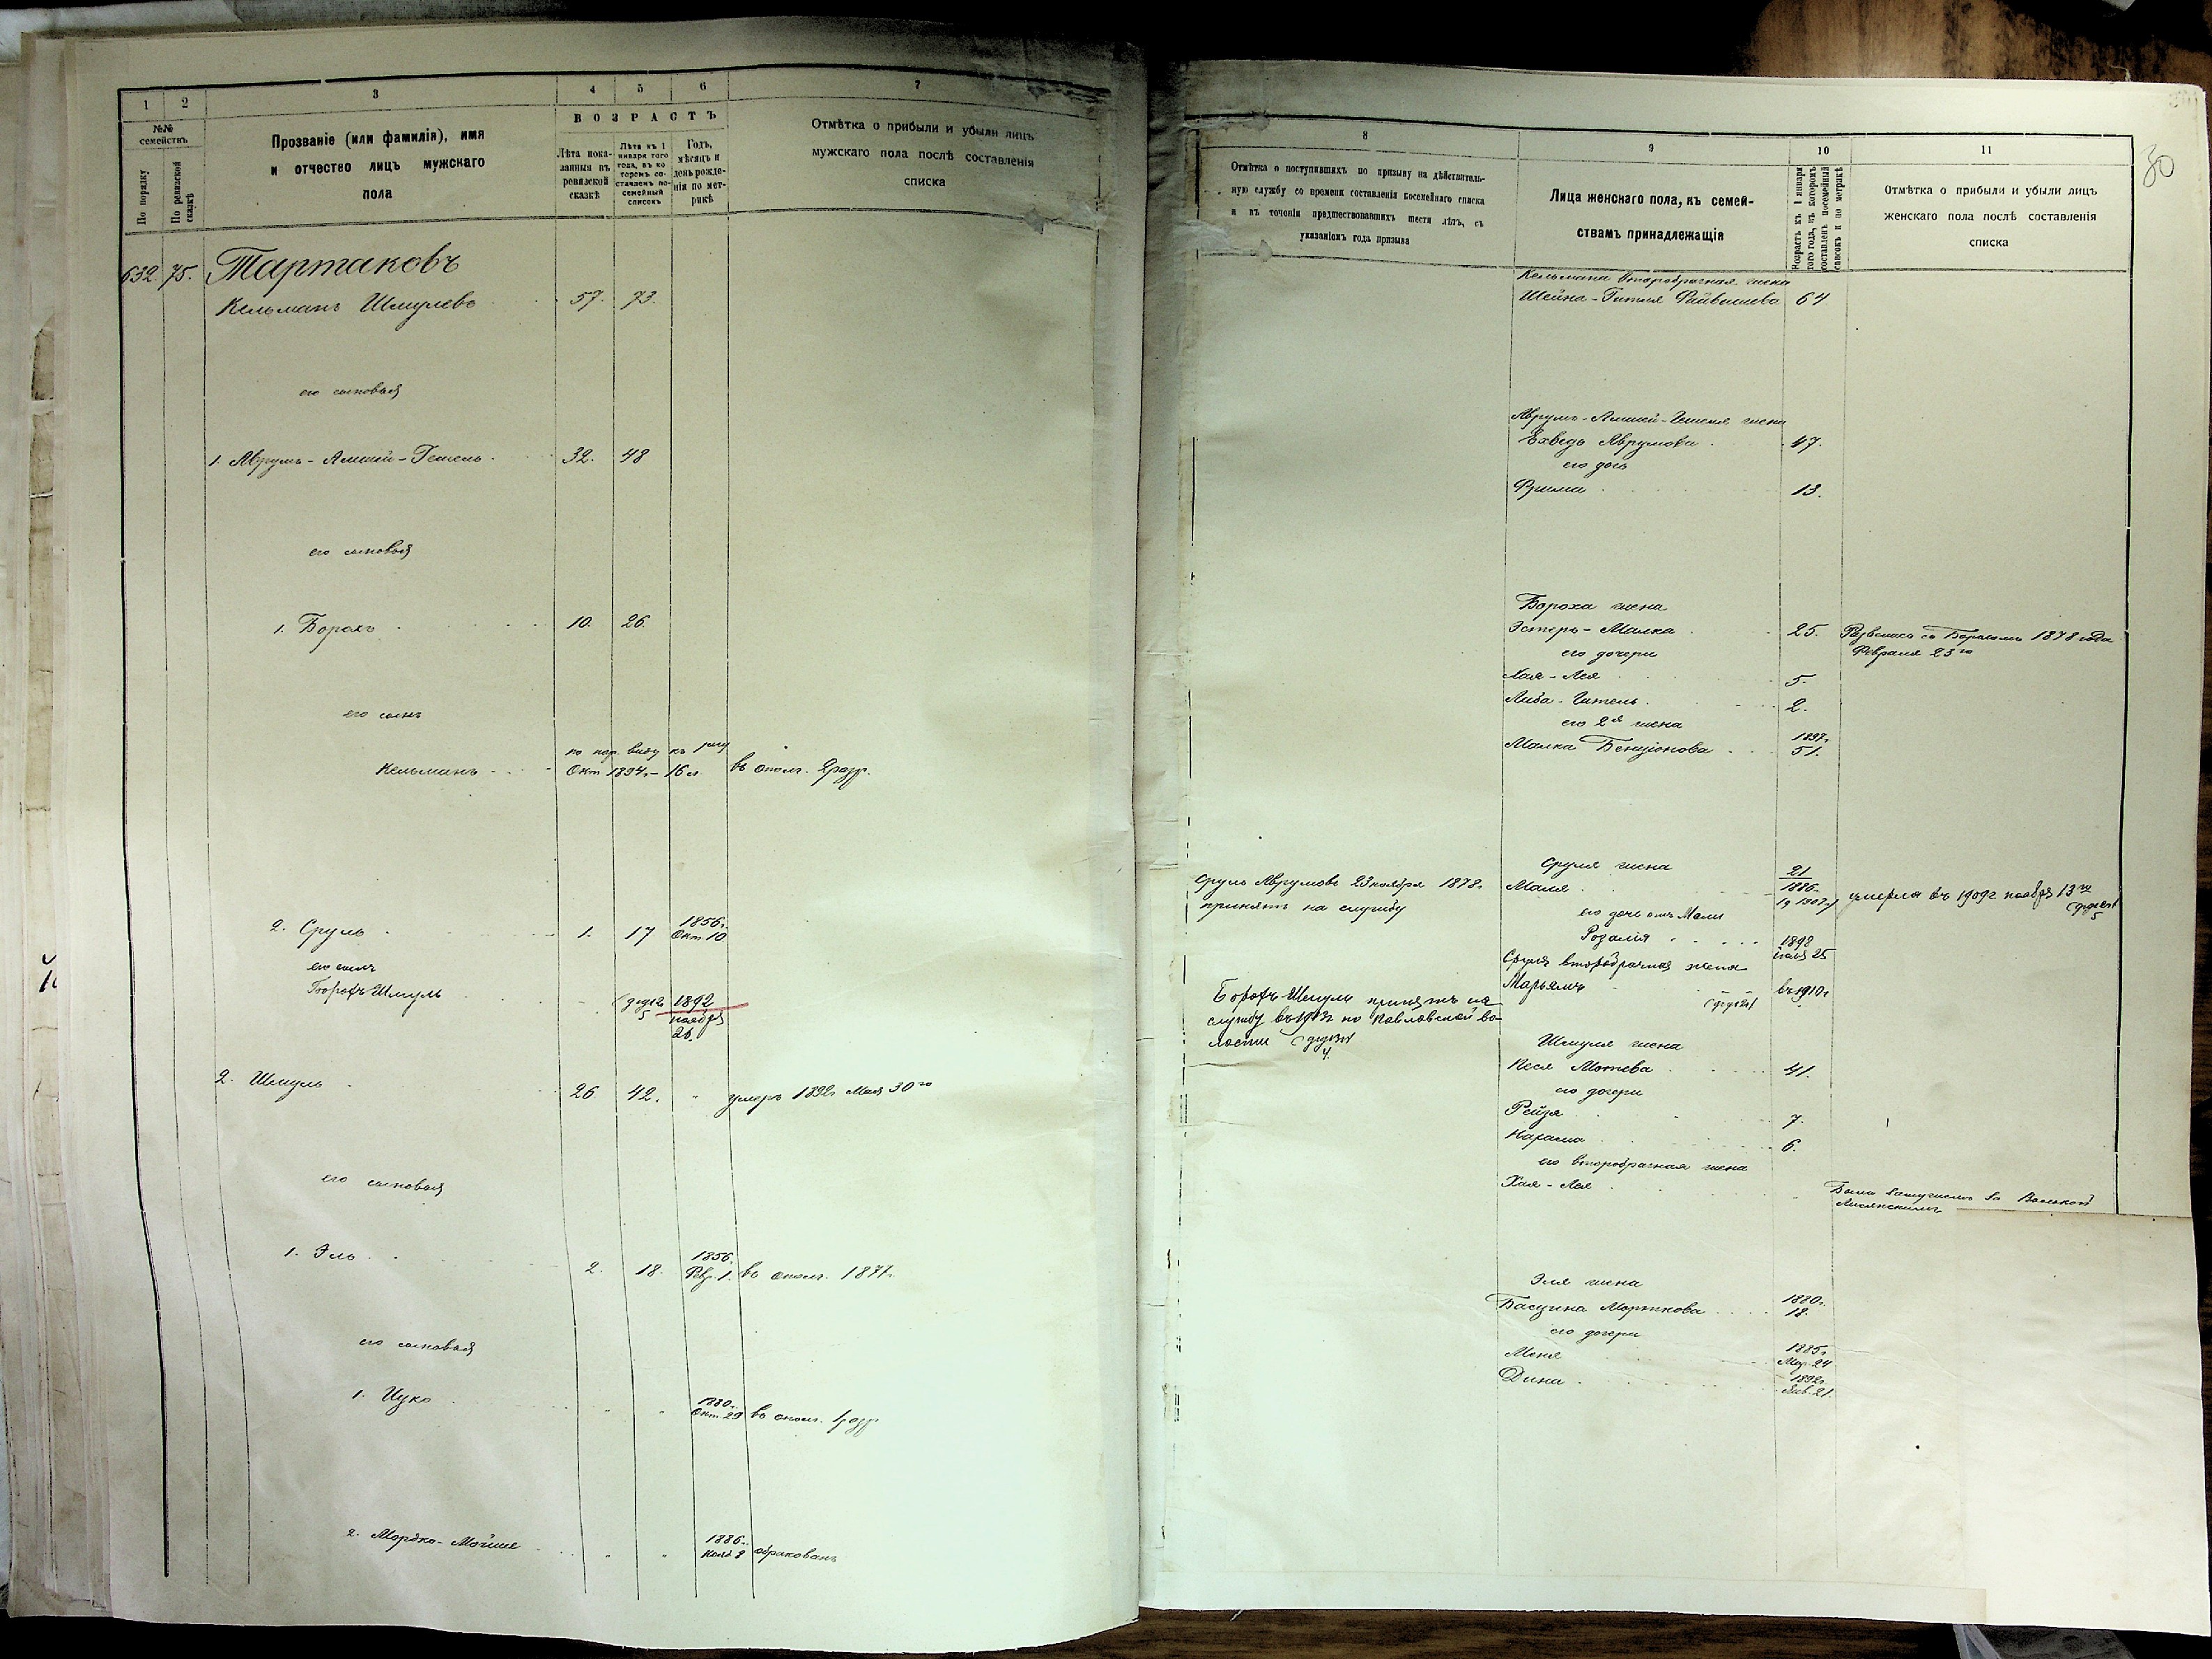 1 2 3 4 5 6 7
№№ семействъ
По порядку
По ревизской сказкѣ
Прозваніе (или фамилія), имя
и отчество лицъ мужскаго
пола
ВОЗРАСТЪ
Лѣта пока-
занныя въ
ревизской
сказкѣ
Лѣта къ 1
января того
года, въ ко
торомъ со-
ставленъ по-
семейный
списокъ
Годъ,
мѣсяцъ и
день рожде-
нія по мет-
рикѣ
Отмѣтка о прибыли и убыли лицъ
мужскаго пола послѣ составленія
списка
632. 75. Тартаковъ
Кельманъ Шмулевъ 57. 73.
его сыновья
1. Аврумъ-Амшей-Гешель 32. 48
его сыновья
1. Борохъ 10. 26.
его сынъ
по пос. виду къ
Кельманъ Окт 1894г.-16 л. въ ополч. 2 разр.
2. Сруль 1. 17 1856г. Окт 10
его сынъ
Борохъ-Шмуль 1892
ноября
26.
2. Шмуль 26 42. " умеръ 1892г Мая 30го
его сыновья
1. Эль 2. 18. 1856. Февр. 1. въ ополч. 1877г.
его сыновья
1. Ицко " " 1880г. Окт 29 въ ополч. 1 разр
2. Мордко-Мойше " " 1886г. Нояб 8 обракованъ
30
8 9 10 11
Отмѣтка о поступившихъ по призыву на дѣйствитель-
ную службу со времени составленія посемейнаго списка
и въ теченіи предшествовавшихъ шести лѣтъ, съ
указаніемъ года призыва
Лица женскаго пола, къ семей-
ствамъ принадлежащія
Возрастъ къ 1 января
того года, въ которомъ
составленъ посемейный
списокъ и по метрикѣ
Отмѣтка о прибыли и убыли лицъ
женскаго пола послѣ составленія
списка
Кельмана второбрачная жена
Шейна-Гитля Файвишева 64
Аврумъ-Амшей-Гешеля жена
Ехведъ Аврумова 47.
его дочь
Фрима 13.
Бороха жена
Эстеръ-Малка 25. Развелась съ Борохомъ 1878 года
Февраля 23го
его дочери
Хая-Лея 5.
Либа-Гитель 2.
его 2я жена
Малка Бенціонова 1897г. 51.
Сруля жена
Сруль Аврумовъ 23 ноября 1878г.
принятъ на службу
Маля 21
1886г.
умерла въ 1909г ноября 13го
его дочь отъ Мали
Розалія 1898
25
Сруля второбрачная жена
Марьямъ въ 1910г
Борохъ-Шмуль принятъ на
службу въ 1913г по Павловской во-
лости
Шмуля жена
Песя Мотева 41.
его дочери
Рейзя 7.
6.
его второбрачная жена
Хая-Лея
Была замужемъ за
Эля жена
Басцина Морткова 1880г. 18.
его дочери
Меня 1885г. Мар. 24
Дина 1892г. Янв. 21.